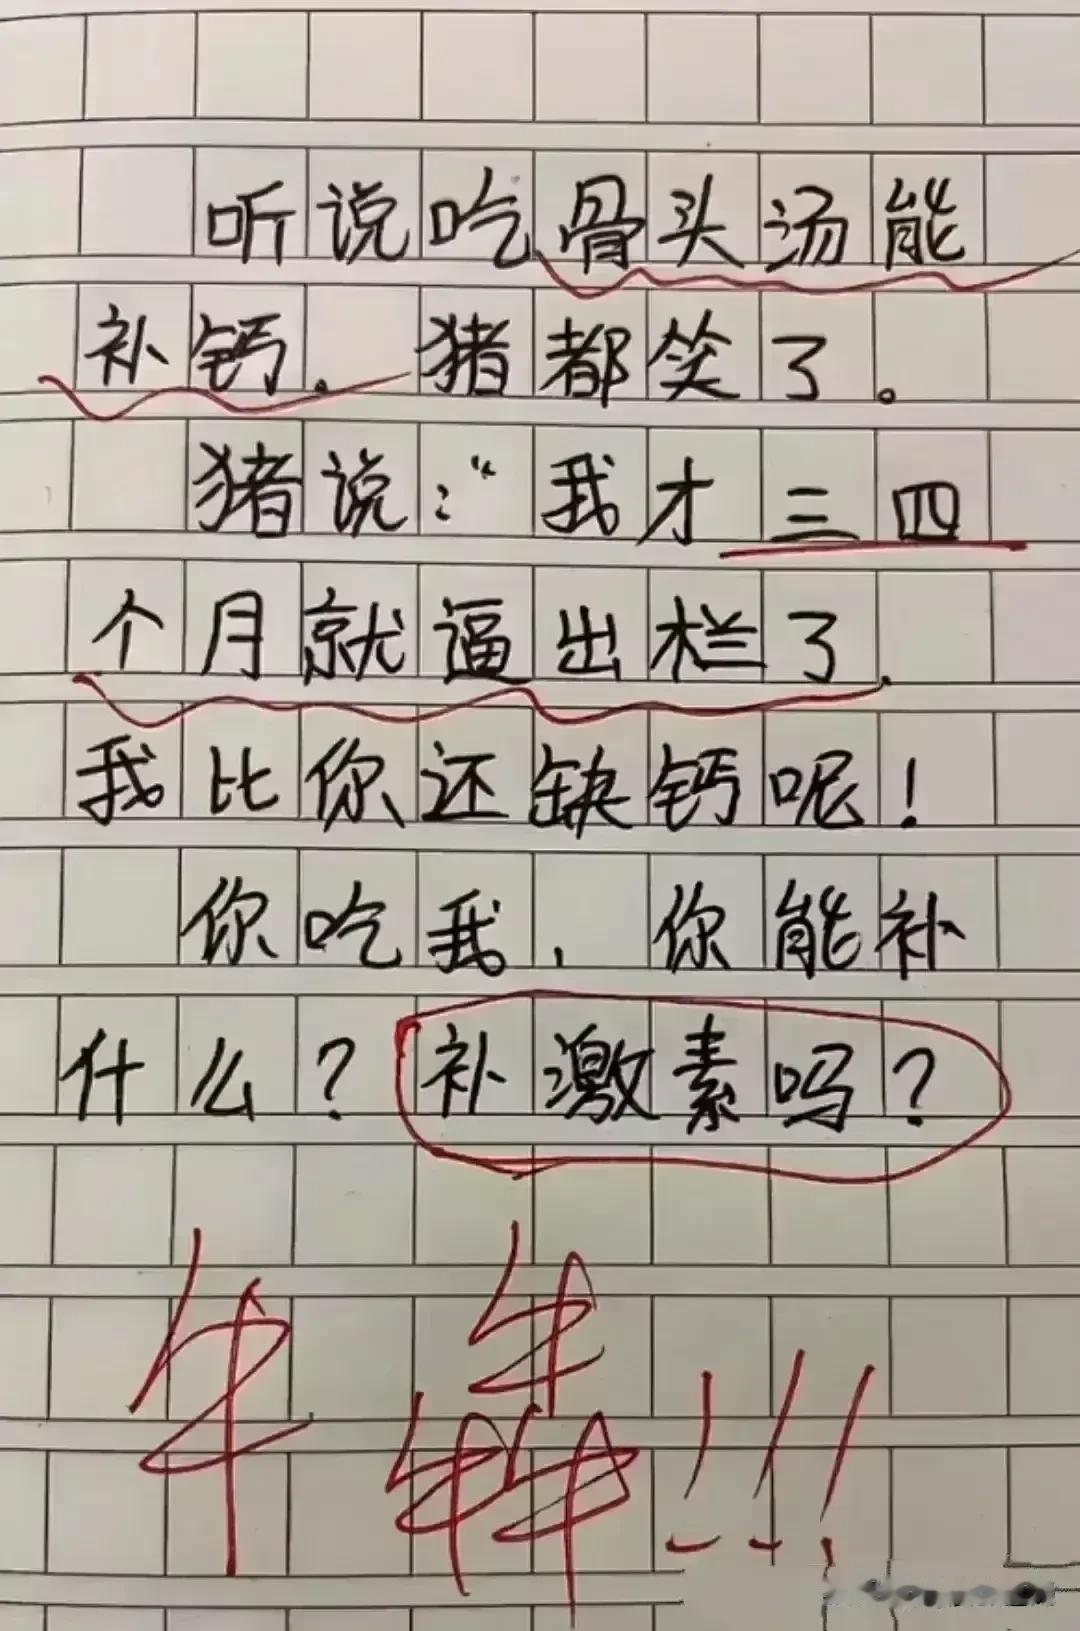 听说吃骨头汤能
补钙，猪都笑了。
猪说：“我才三四
个月就逼出栏了，
我比你还缺钙呢！
你吃我，你能补
什么？补激素吗？
牛犇!!!